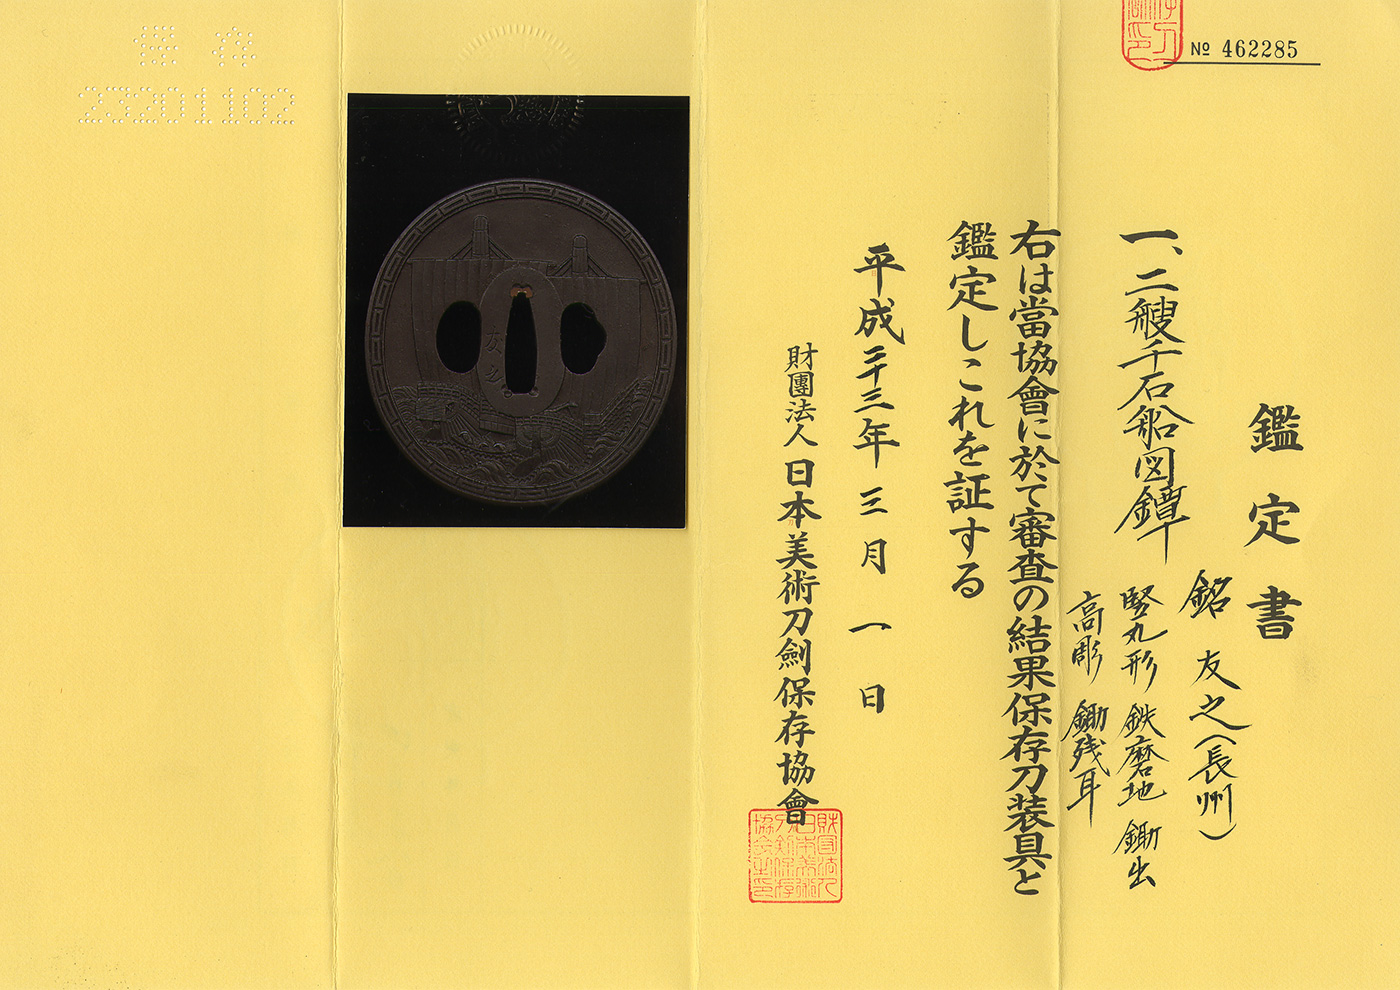 № 462285
鑑定書
一、二艘千石船図鐔
銘 友之(長州)
竪丸形 鉄磨地 鋤出
高彫 鋤残耳
右は當協會に於て審査の結果保存刀装具と
鑑定しこれを証する
平成二十三年 三月 一日
財團法人 日本美術刀劍保存協會
財団法人日本美術刀剣保存協会之印
友之
保存
23201102